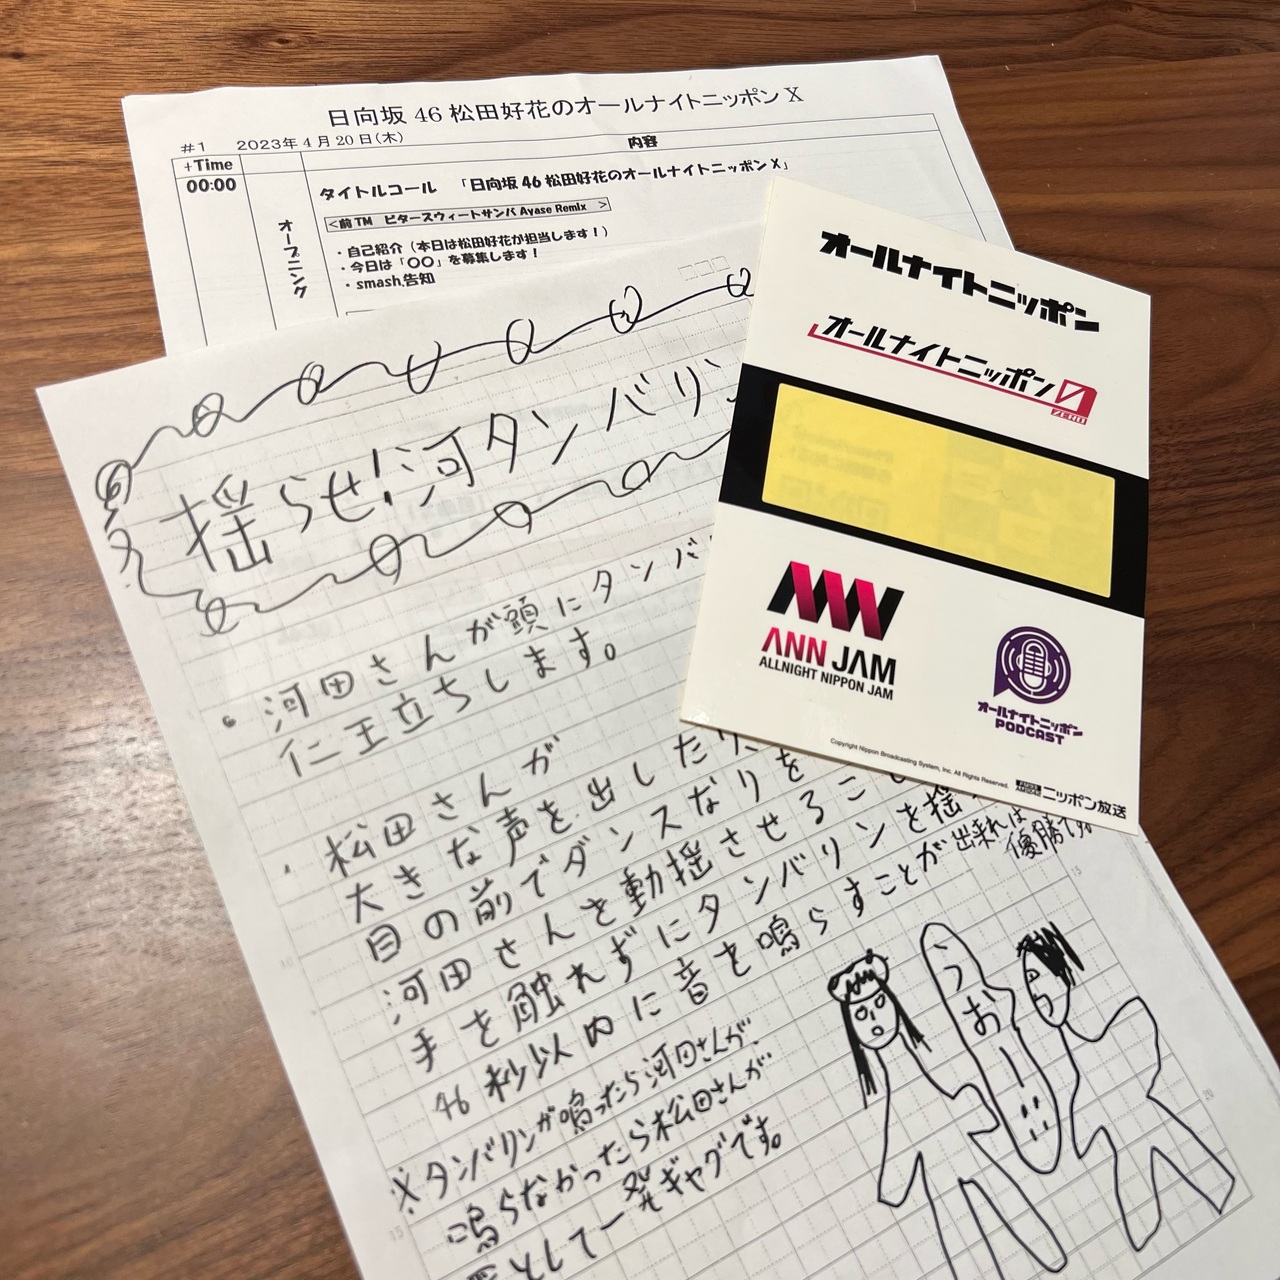 日向坂46 松田好花のオールナイトニッポンX
#1 2023年4月20日(木)
+Time
内容
00:00
オープニング
タイトルコール 「日向坂46松田好花のオールナイトニッポンX」
<前TM ビタースウィートサンバ Ayase Remix >
・自己紹介（本日は松田好花が担当します！）
・今日は「〇〇」を募集します！
・smash.告知
揺らせ!河タンバリン
・河田さんが頭にタンバ
仁王立ちします。
・松田さんが
大きな声を出したり
目の前でダンスなりを
河田さんを動揺させるこ
手を触れずにタンバリンを揺
46秒以内に音を鳴らすことが出来れば
優勝です。
※タンバリンが鳴ったら河田さんが、
鳴らなかったら松田さんが
として一発ギャグです。
うおー!!
オールナイトニッポン
オールナイトニッポン0
ZERO
ANN JAM
ALLNIGHT NIPPON JAM
オールナイトニッポン
PODCAST
Copyright Nippon Broadcasting System, Inc. All Rights Reserved.
ニッポン放送